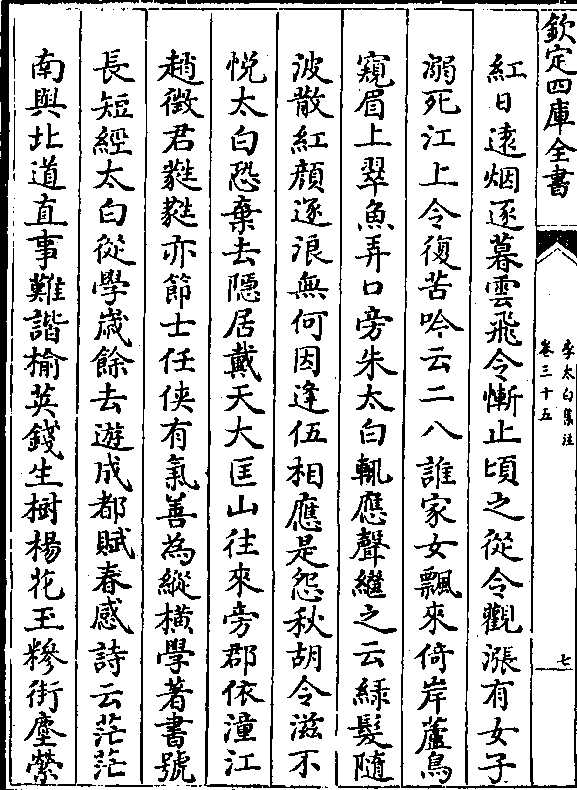 欽定四庫全書
李太白集注
卷三十五
七
紅日遠烟逐暮雲飛令慚止頃之從令觀漲有女子
溺死江上令復苦吟云二八誰家女飄來倚岸蘆鳥
窺眉上翠魚弄口旁朱太白輒應聲繼之云緑髮隨
波散紅顔逐浪無何因逢伍相應是怨秋胡令滋不
悦太白恐棄去隱居戴天大匡山往來旁郡依潼江
趙徵君蕤蕤亦節士任俠有氣善為縱横學著書號
長短經太白從學歲餘去遊成都賦春感詩云茫茫
南與北道直事難諧榆莢錢生樹楊花玉糝街塵縈